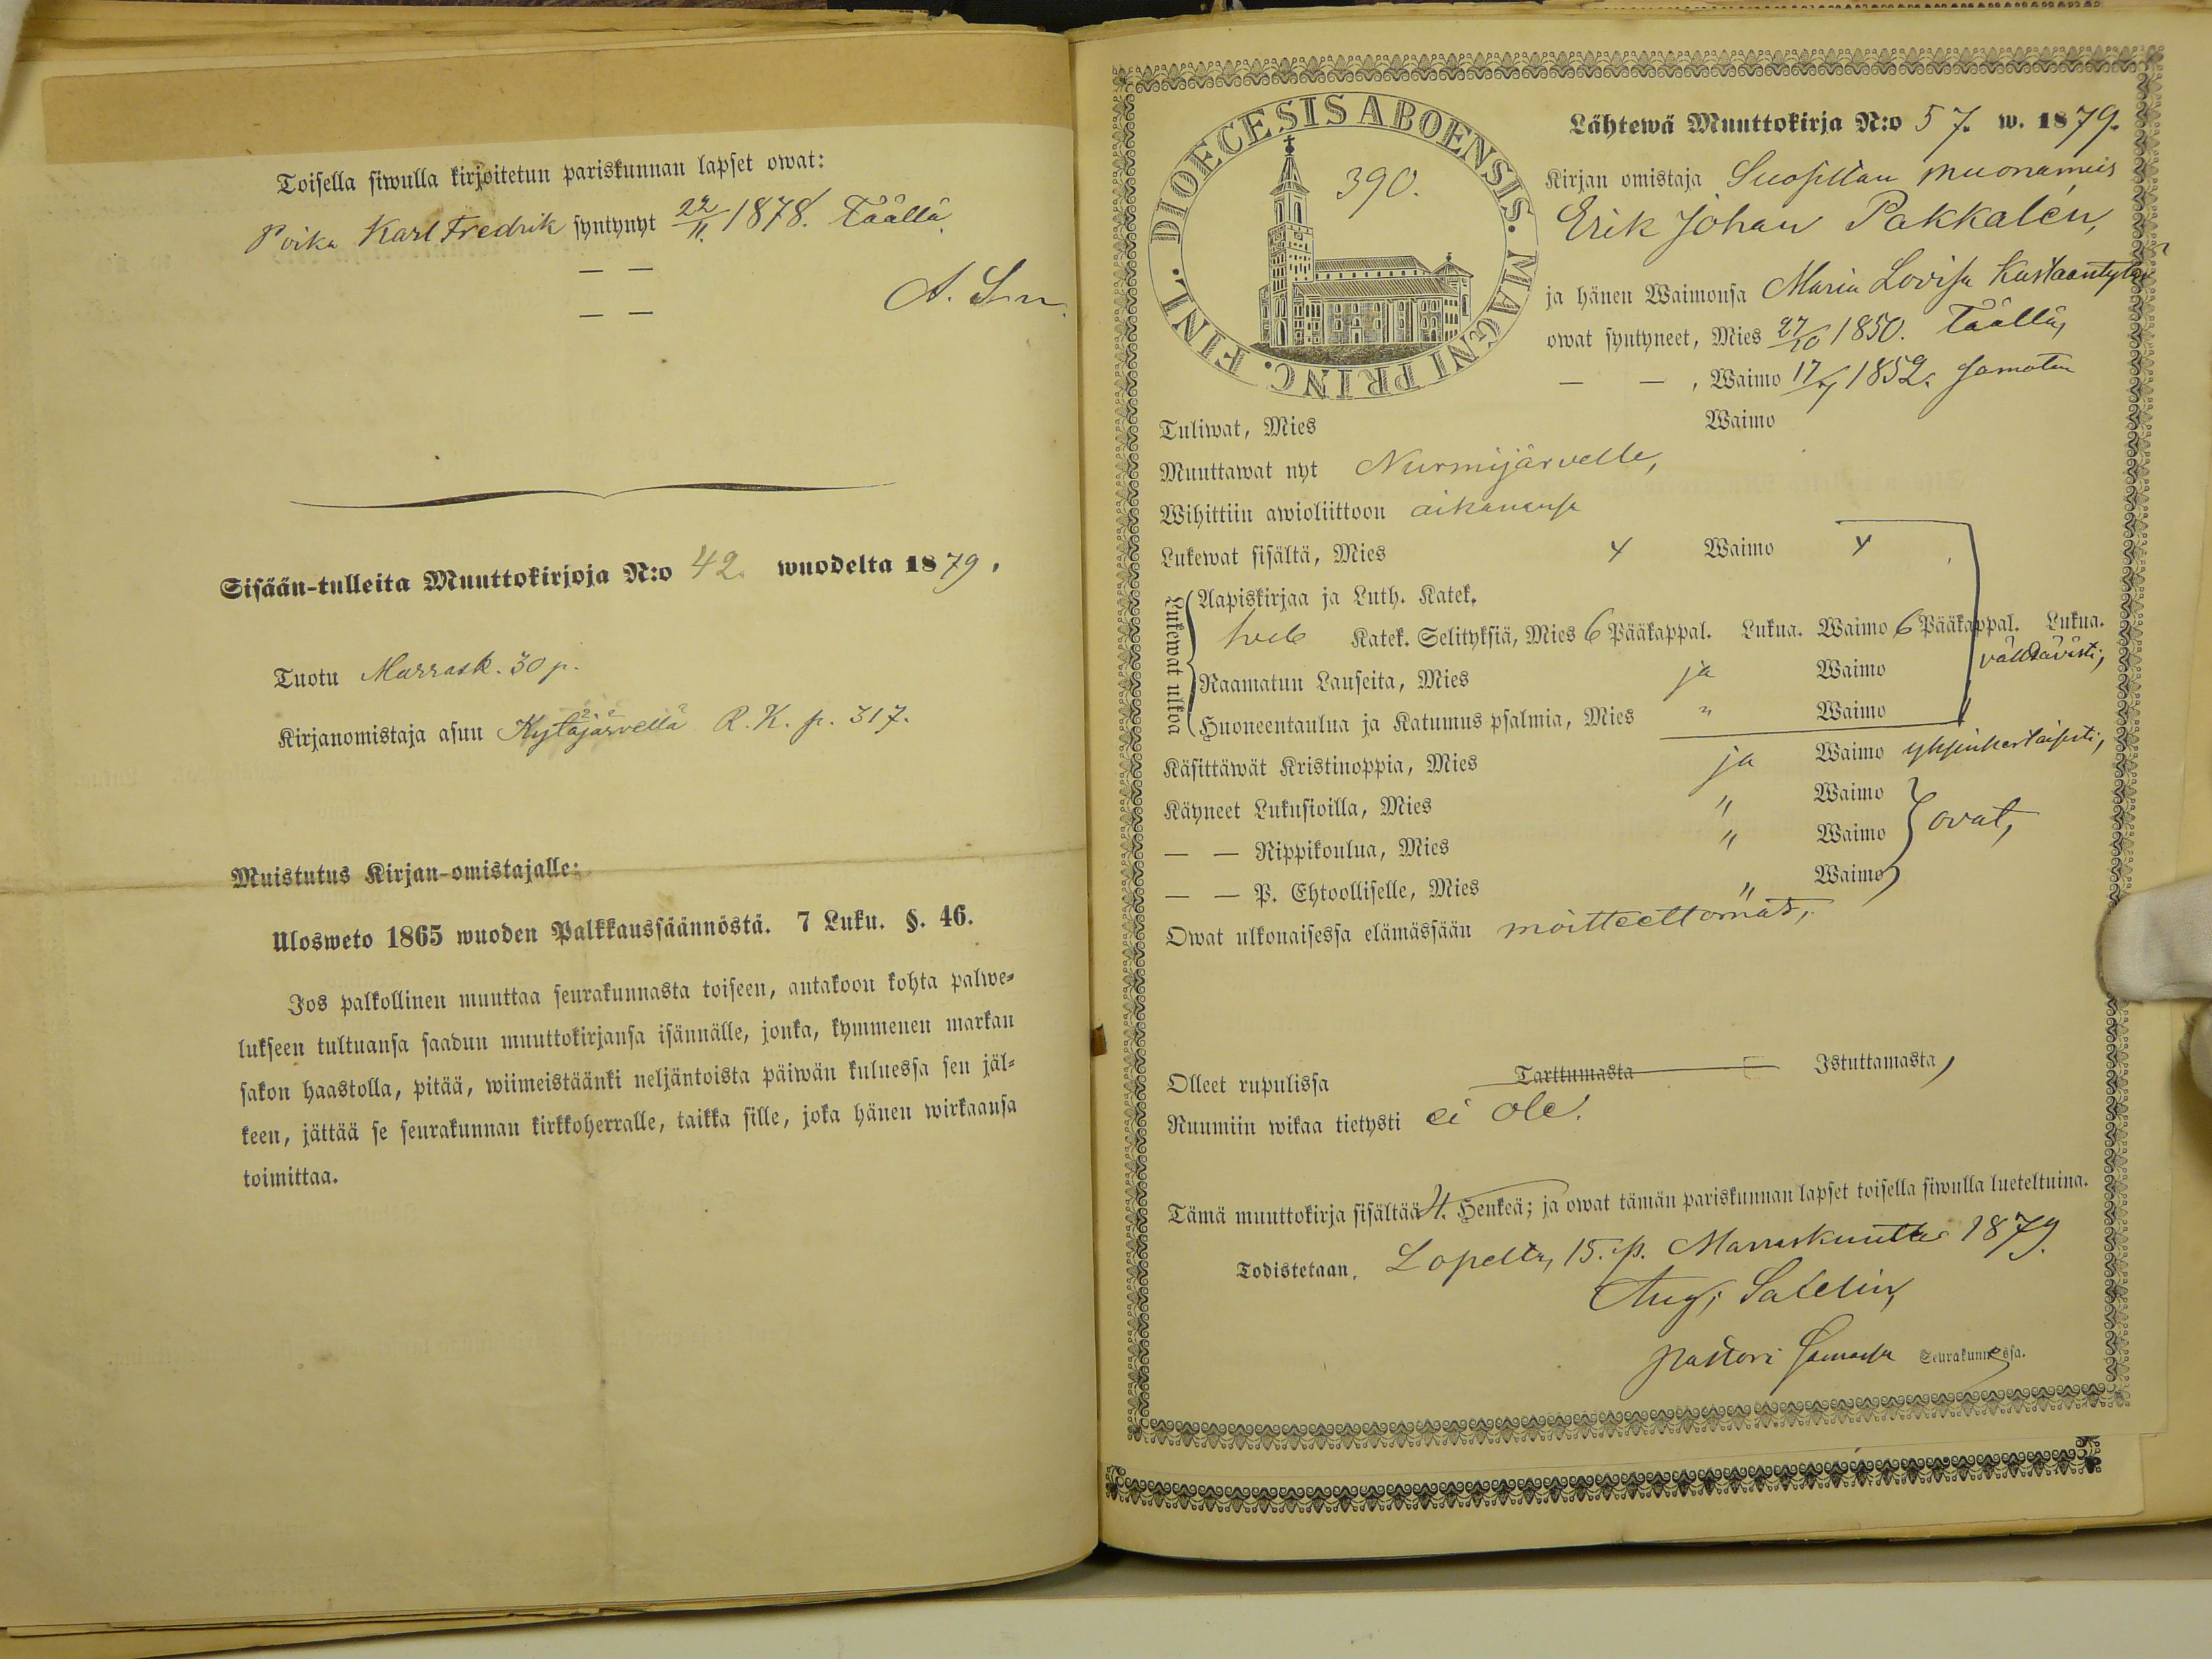 Toisella siwulla kirjoitetun pariskunnan lapset owat:
Poika Karl Fredrik syntynyt 22/11 1878. Täällä.
— —
— —
Sisään-tulleita Muuttokirjoja N:o 42. wuodelta 1879.
Tuotu Marrask. 30 p.
Kirjanomistaja asuu Kytäjärvellä R. K. p. 317.
Muistutus Kirjan-omistajalle:
Ulosweto 1865 wuoden Palkkaussäännöstä. 7 Luku. §. 46.
Jos palkollinen muuttaa seurakunnasta toiseen, antakoon kohta palwe-
lukseen tultuansa saadun muuttokirjansa isännälle, jonka, kymmenen markan
sakon haastolla, pitää, wiimeistäänki neljäntoista päiwän kuluessa sen jäl-
keen, jättää se seurakunnan kirkkoherralle, taikka sille, joka hänen wirkaansa
toimittaa.
DIOECESIS ABOENSIS. MAGNI PRINC. FINL.
390.
Lähtewä Muuttokirja N:o 57. w. 1879.
Kirjan omistaja muonamies
Erik Johan Pakkalén,
ja hänen Waimonsa Maria Lovisa Kustaantytär
owat syntyneet, Mies 27/10 1850. Täällä,
— — , Waimo 17/ 1852. samoten
Tuliwat, Mies Waimo
Muuttawat nyt Nurmijärvelle,
Wihittiin awioliittoon aikanansa
Lukewat sisältä, Mies Waimo
Lukewat ulkoa
Aapiskirjaa ja Luth. Katek.
Katek. Selityksiä, Mies 6 Pääkappal. Lukua. Waimo 6 Pääkappal. Lukua.
välttävästi,
Raamatun Lauseita, Mies ja Waimo
Huoneentaulua ja Katumus-psalmia, Mies " Waimo
Käsittäwät Kristinoppia, Mies ja Waimo yksinkertaisesti,
Käyneet Lukusioilla, Mies " Waimo
— — Rippikoulua, Mies " Waimo ovat,
— — P. Ehtoolliselle, Mies " Waimo
Owat ulkonaisessa elämässään moitteettomat,
Olleet rupulissa Tarttumasta Istuttamasta,
Ruumiin wikaa tietysti ei ole.
Tämä muuttokirja sisältää Henkeä; ja owat tämän pariskunnan lapset toisella siwulla lueteltuina.
Todistetaan, Lopelta, 15. p. Marraskuuta 1879.
Aug. Salelin,
pastori samassa Seurakunnassa.